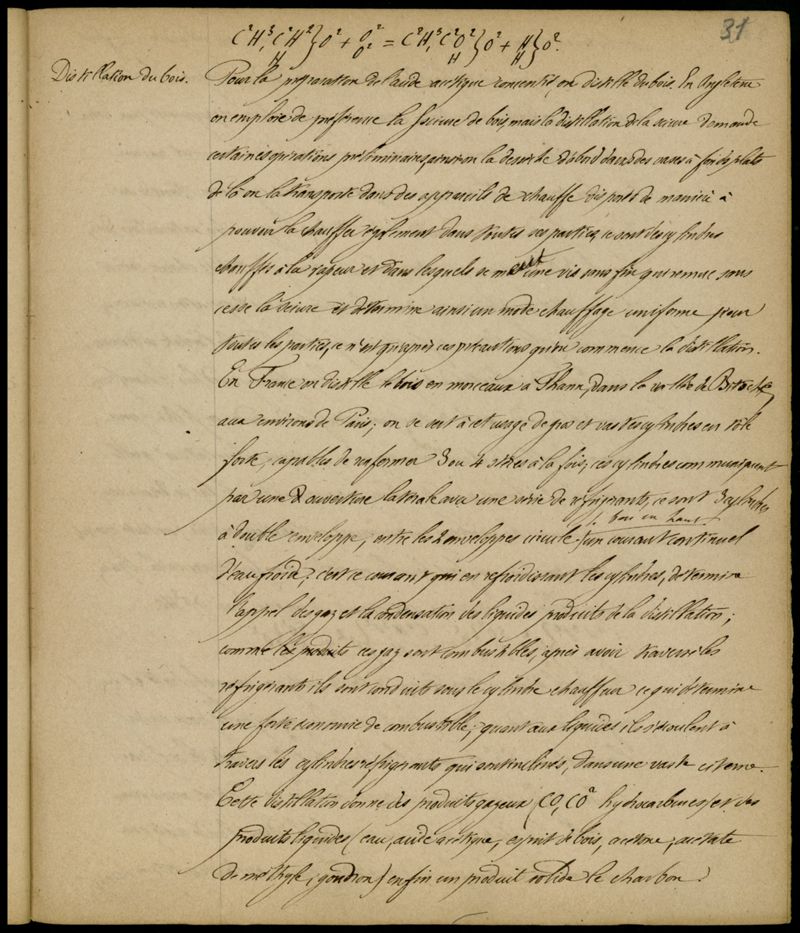 31
C²H³,C²H²}O² + O² = C²H³,C²O²}O² + H}O².
H O² H H
Distillation du bois.
Pour la préparation de l'acide acétique concentré, on distille du bois. En Angleterre
on emploie de préférence la sciure de bois, mais la distillation de la sciure demande
certaines opérations préliminaires, on la dessèche d'abord dans des vases à fonds plats
de là on la transporte dans des appareils de chauffe disposés de manière à
pouvoir la chauffer également dans toutes ses parties, ce sont des cylindres
chauffés à la vapeur et dans lesquels se meut une vis sans fin qui remue sans
cesse la sciure et détermine ainsi un mode chauffage uniforme pour
toutes les parties, ce n'est qu'après ces précautions qu'on commence la distillation.
En France on distille le bois en morceaux à Thann, dans la vallée de
aux environs de Paris; on se sert à cet usage de gros et vastes cylindres en tôle
forte, capables de renfermer 3 ou 4 stères à la fois, ces cylindres communiquent
par une ouverture latérale avec une série de réfrigérants, ce sont 3 cylindres
à double enveloppe, entre les 2 enveloppes circule un courant continuel
bas en haut
d'eau froide; c'est ce courant qui en refroidissant les cylindres, détermine
l'appel des gaz et la condensation des liquides produits de la distillation;
comme les produits ces gaz sont combustibles, après avoir traversé les
réfrigérants ils sont conduits sous le cylindre chauffeur ce qui détermine
une forte économie de combustible; quant aux liquides ils s'écoulent à
travers les cylindres réfrigérants qui sont inclinés, dans une vaste citerne.
Cette distillation donne des produits gazeux (CO, CO² hydrocarbures) et des
produits liquides (eau, acide acétique, esprit de bois, acétone, acétate
de méthyle, goudron) enfin un produit solide le charbon.